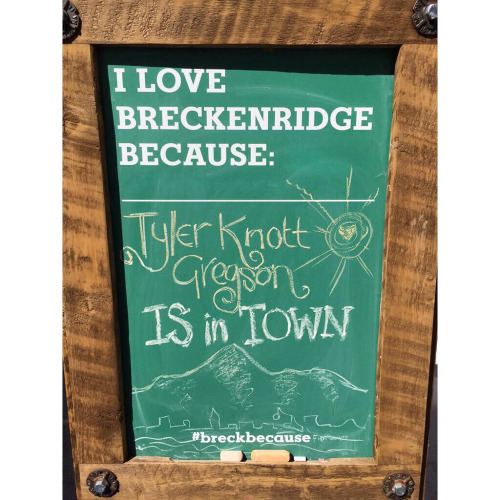 I LOVE
BRECKENRIDGE
BECAUSE:
Tyler Knott
Gregson
IS in TOWN
#breckbecause